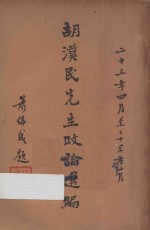 二十三年四月至二十五年四月
胡漢民先生政論選編
蕭佛成題